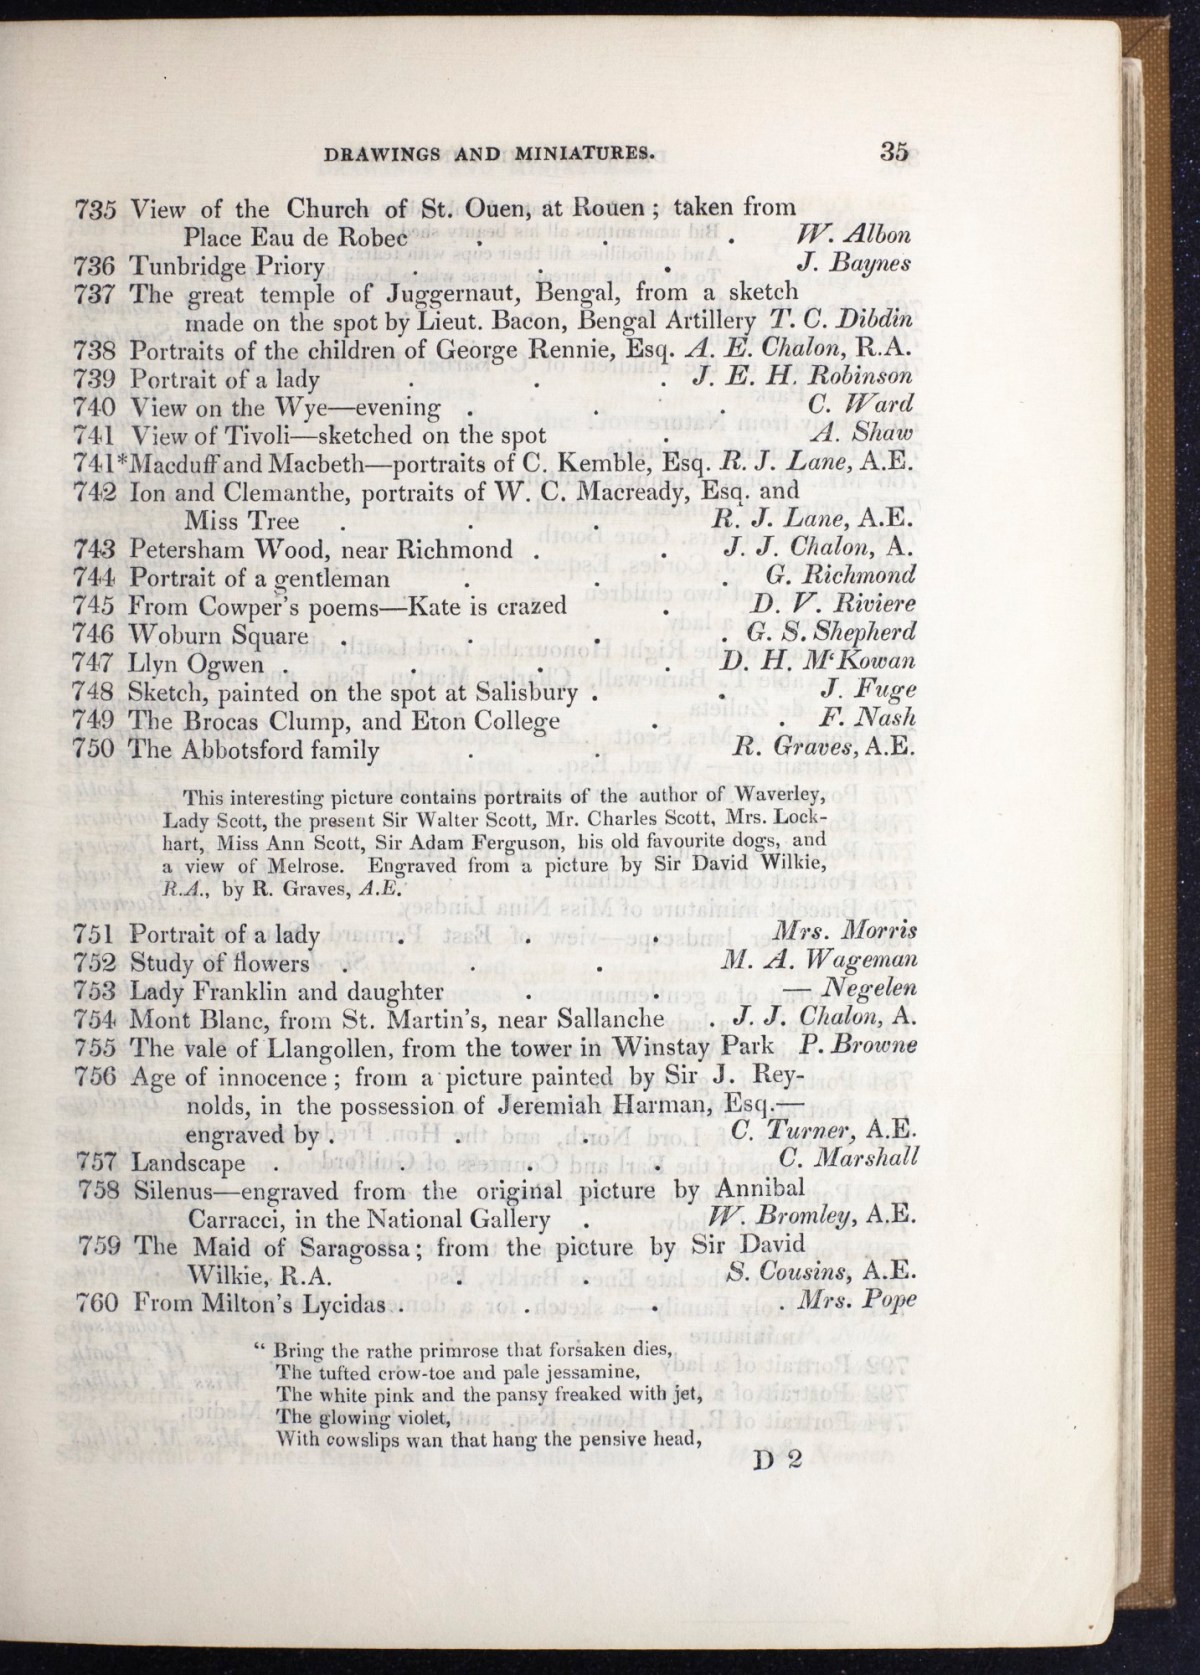 DRAWINGS AND MINIATURES. 35
735 View of the Church of St. Ouen, at Rouen ; taken from
Place Eau de Robec . . . W. Albon
736 Tunbridge Priory . . . J. Baynes
737 The great temple of Juggernaut, Bengal, from a sketch
made on the spot by Lieut. Bacon, Bengal Artillery T. C. Dibdin
738 Portraits of the children of George Rennie, Esq. A. E. Chalon, R.A.
739 Portrait of a lady . . . J. E. H. Robinson
740 View on the Wye—evening . . . C. Ward
741 View of Tivoli—sketched on the spot . A. Shaw
741*Macduff and Macbeth—portraits of C. Kemble, Esq. R. J. Lane, A.E.
742 Ion and Clemanthe, portraits of W. C. Macready, Esq. and
Miss Tree . . . R. J. Lane, A.E.
743 Petersham Wood, near Richmond . . J. J. Chalon, A.
744 Portrait of a gentleman . . . G. Richmond
745 From Cowper's poems—Kate is crazed . D. V. Riviere
746 Woburn Square . . . . G. S. Shepherd
747 Llyn Ogwen . . . . D. H. M‘Kowan
748 Sketch, painted on the spot at Salisbury . . J. Fuge
749 The Brocas Clump, and Eton College . . F. Nash
750 The Abbotsford family . . R. Graves, A.E.
This interesting picture contains portraits of the author of Waverley,
Lady Scott, the present Sir Walter Scott, Mr. Charles Scott, Mrs. Lock-
hart, Miss Ann Scott, Sir Adam Ferguson, his old favourite dogs, and
a view of Melrose. Engraved from a picture by Sir David Wilkie,
R.A., by R. Graves, A.E.
751 Portrait of a lady . . . Mrs. Morris
752 Study of flowers . . . M. A. Wageman
753 Lady Franklin and daughter . . — Negelen
754 Mont Blanc, from St. Martin's, near Sallanche . J. J. Chalon, A.
755 The vale of Llangollen, from the tower in Winstay Park P. Browne
756 Age of innocence ; from a picture painted by Sir J. Rey-
nolds, in the possession of Jeremiah Harman, Esq.—
engraved by . . . C. Turner, A.E.
757 Landscape . . . . C. Marshall
758 Silenus—engraved from the original picture by Annibal
Carracci, in the National Gallery . W. Bromley, A.E.
759 The Maid of Saragossa ; from the picture by Sir David
Wilkie, R.A. . . S. Cousins, A.E.
760 From Milton's Lycidas . . . . Mrs. Pope
“ Bring the rathe primrose that forsaken dies,
The tufted crow-toe and pale jessamine,
The white pink and the pansy freaked with jet,
The glowing violet,
With cowslips wan that hang the pensive head,
D 2